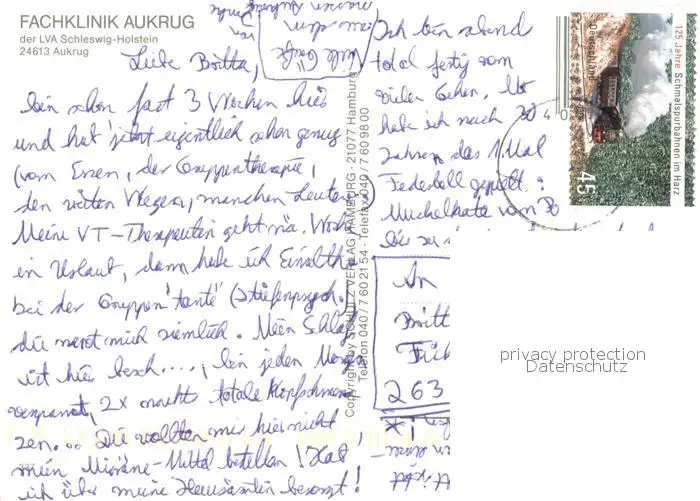 FACHKLINIK AUKRUG
der LVA Schleswig-Holstein
24613 Aukrug
Liebe Britta,
bin schon fast 3 Wochen hier
und hat' jetzt eigentlich schon genug
(vom Essen, der Gruppentherapie,
den weiten Wegen, manchen Leuten)
Meine VT-Therapeutin geht nä. Woche
in Urlaub, dann habe ich
bei der Gruppen"tante" (Tiefenpsych.
die nervt mich ziemlich. Mein Schlaf
ist hier besch...., bin jeden Morgen
verspannt, 2x nachts totale Kopfschmer
zen... Die wollten mir hier nicht
mein Migräne-Mittel bestellen! Hat
ich über meine Hausärztin besorgt!
Viele Grüße
Ich bin abend
total fertig vom
vielen Gehen.
habe ich nach 30
Jahren das 1. Mal
Federball gespielt:
Muskelkater vom Po
bis zu
An
Britt
263
Copyright by SCHÜTZ VERLAG HAMBURG · 21077 Hamburg
Telefon 040 / 7 60 21 54 · Telefax 040 / 7 60 98 00
125 Jahre Schmalspurbahnen im Harz
Deutschland
45
privacy protection
Datenschutz